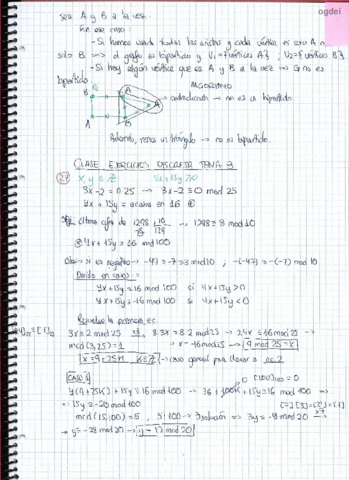 ogdei
sea A y B a la vez.
En ese caso:
- Si hemos usado todas las aristas y cada vértice es solo A o
solo B => el grafo es bipartido y V₁={vértices A}; V₂={vértices B}
- Si hay algún vértice que es A y B a la vez => G no es
bipartido
ALGORITMO
B A
contradicción → no es bipartido.
A B
Además, vemos un triángulo → no es bipartido.
CLASE EJERCICIOS DISCRETA TEMA 3
x, y ∈ Z 4x+15y>0
3x-2 = 0.25 → 3x-2 ≡ 0 mod 25
4x + 15y = acaba en 16
Última cifra de 1298 1298 ≡ 8 mod 10
4x + 15y ≡ 16 mod 100
si es negativo → -47 = -7 = 3 mod 10; -(-47) = -(-7) mod 10
Divido en casos:
4x+15y ≡ 16 mod 100 si 4x+15y>0
4x+15y ≡ -16 mod 100 si 4x+15y<0
Resuelvo la primera ec.
3x ≡ 2 mod 25 8·3x ≡ 8·2 mod 25 → 24x ≡ 16 mod 25 →
mcd(3,25)=1 → x = -16 mod 25 → 9 mod 25 = x
x = 9+25K, K∈Z → caso general para llevar a ec. 2
CASO 1 (100)₁₀₀ = 0
4(9+25K) + 15y ≡ 16 mod 100 → 36 + 100K + 15y ≡ 16 mod 100 =>
→ 15y ≡ -20 mod 100
mcd(15,100)=5, 5|100 → 3 solución => 3y = -4 mod 20
→ y = -28 mod 20 → y = 12 mod 20